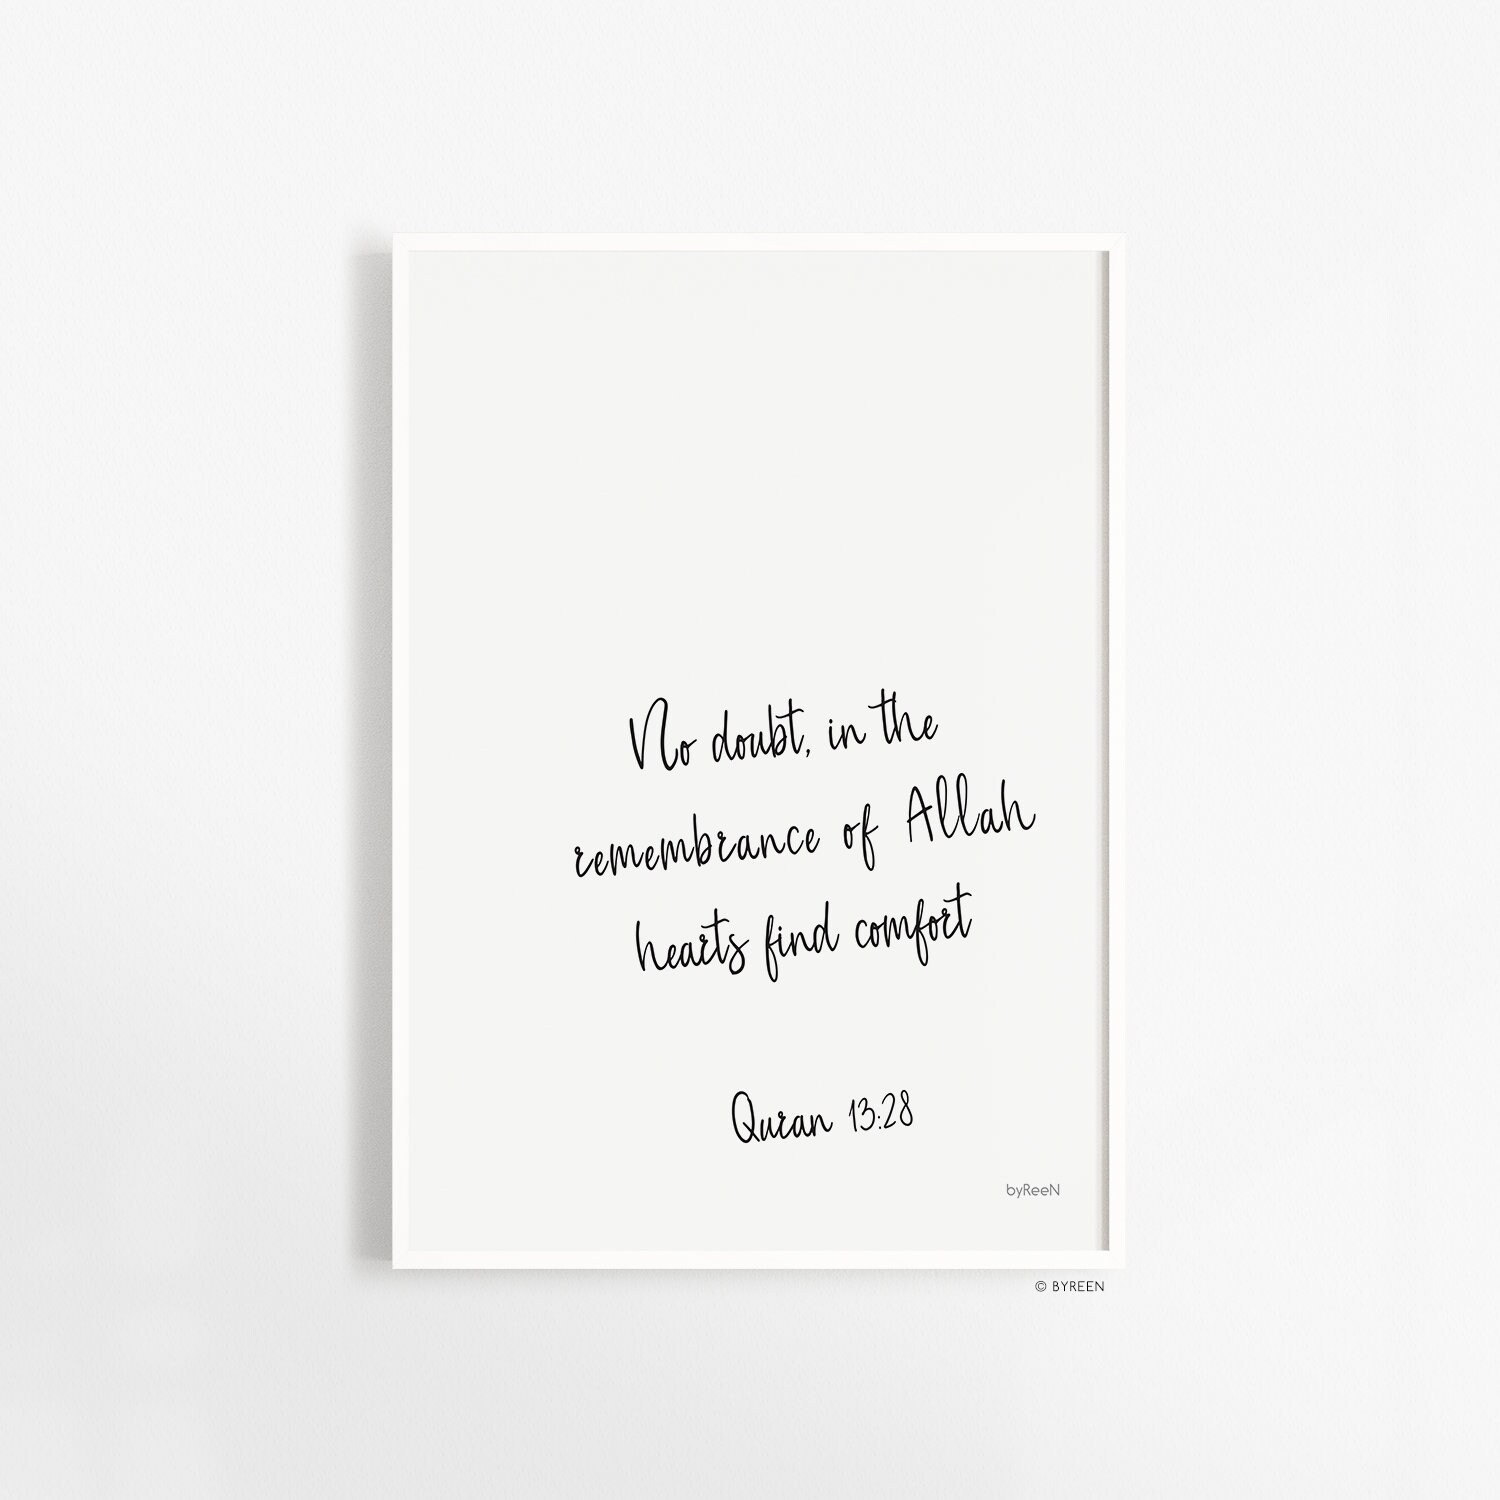 No doubt, in the
remembrance of Allah
hearts find comfort
Quran 13:28
byReeN
© BYREEN